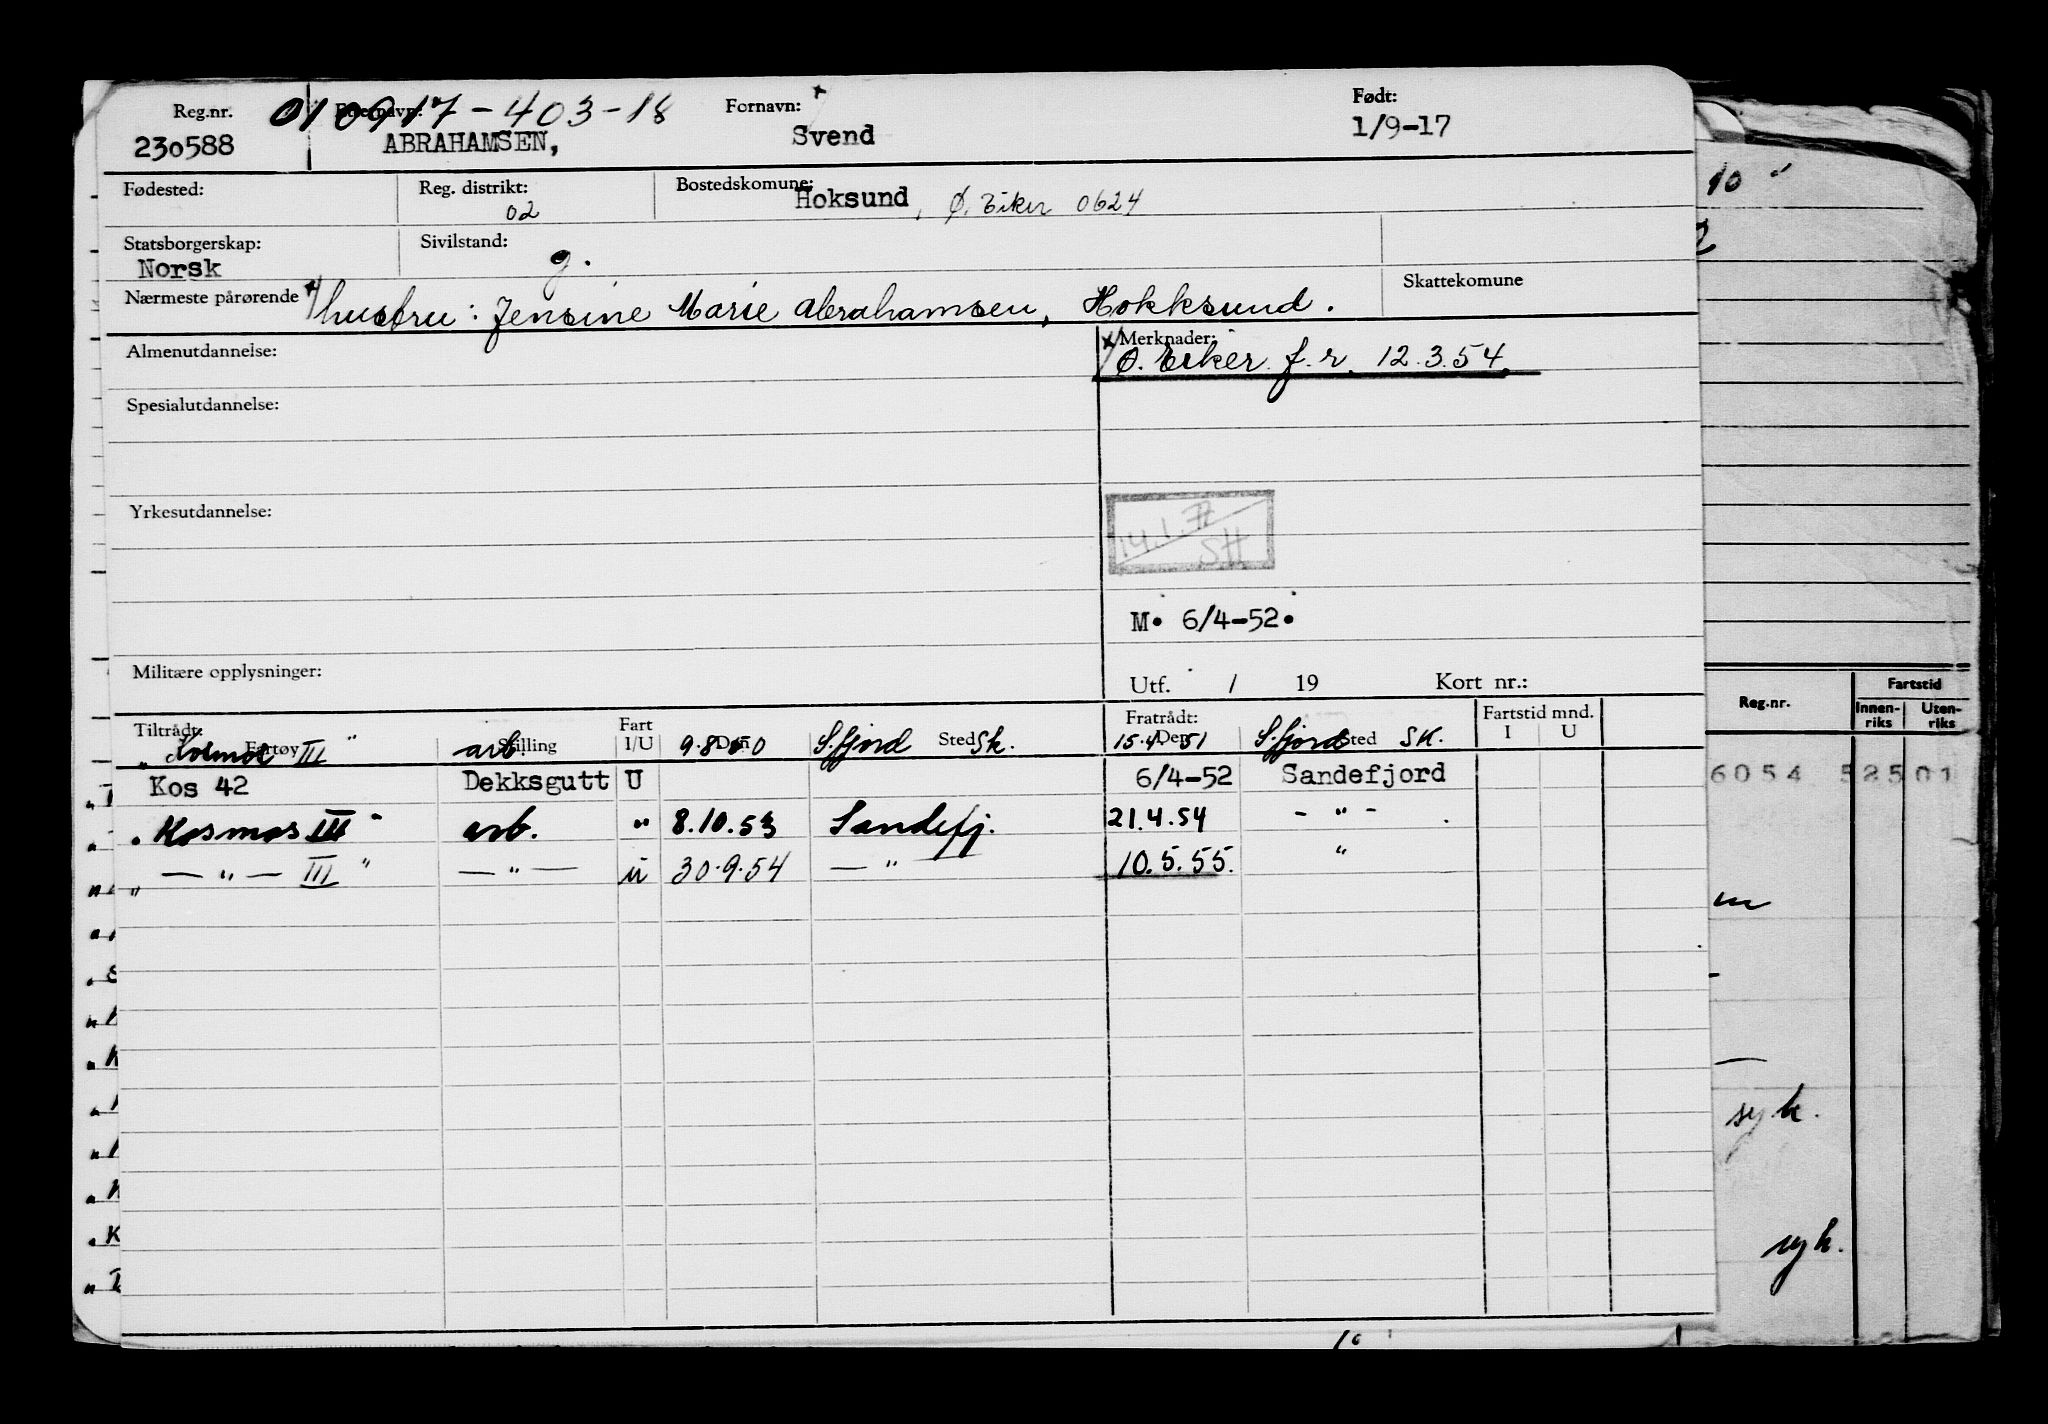 Reg.nr. 010917-403-18 Etternavn: Fornavn: Født:
230588 ABRAHAMSEN, Svend 1/9-17
Fødested: Reg. distrikt: Bostedskomune:
02 Hoksund, Ø. Eiker 0624
Statsborgerskap: Sivilstand:
Norsk g.
Nærmeste pårørende Skattekomune
hustru: Jensine Marie Abrahamsen, Hokksund.
Almenutdannelse: Merknader:
Ø. Eiker f.r. 12.3.54.
Spesialutdannelse:
Yrkesutdannelse:
14.1.77
SH
M. 6/4-52.
Militære opplysninger: Utf. / 19 Kort nr.:
Tiltrådt: Fart Fratrådt: Fartstid mnd.
Fartøy Stilling I/U Den Sted Den Sted I U
III" arb. S.fjord Sk. 15.4.51 S.fjord SK.
Kos 42 Dekksgutt U 6/4-52 Sandefjord
"Kosmos III" arb. " 8.10.53 Sandefj. 21.4.54 - " -
" — " — III " — " — U 30.9.54 — " — 10.5.55. "
10 "
Reg.nr. Fartstid
Innen-riks Uten-riks
6054 52501
syk.
syk.